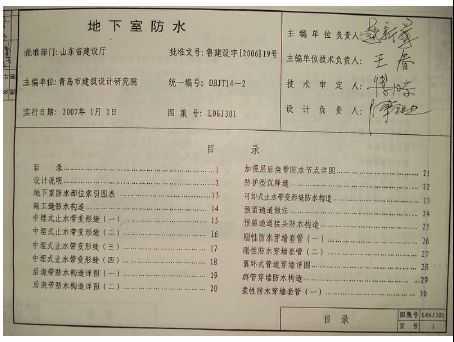 地下室防水
批准部门:山东省建设厅
批准文号:鲁建设字[2006]19号
主编单位:青岛市建筑设计研究院
统一编号:DBJT14-2
实行日期:2007年1月1日
图集号:L06J301
主编单位负责人:
主编单位技术负责人:
技术审定人:
设计负责人:
目录
目录 1
设计说明 1
地下室防水部位索引图表 13
施工缝防水构造 14
中埋式止水带变形缝(一) 15
中埋式止水带变形缝(二) 16
中埋式止水带变形缝(三) 17
中埋式止水带变形缝(四) 18
后浇带防水构造详图(一) 19
后浇带防水构造详图(二) 20
21
22
可卸式止水带变形缝防水构造 23
24
预留通道接头防水构造 25
刚性防水穿墙套管(一) 26
刚性防水穿墙套管(二) 27
28
群管穿墙防水构造 29
柔性防水穿墙套管(一) 30
目录
图集号 L06J301
页号 1